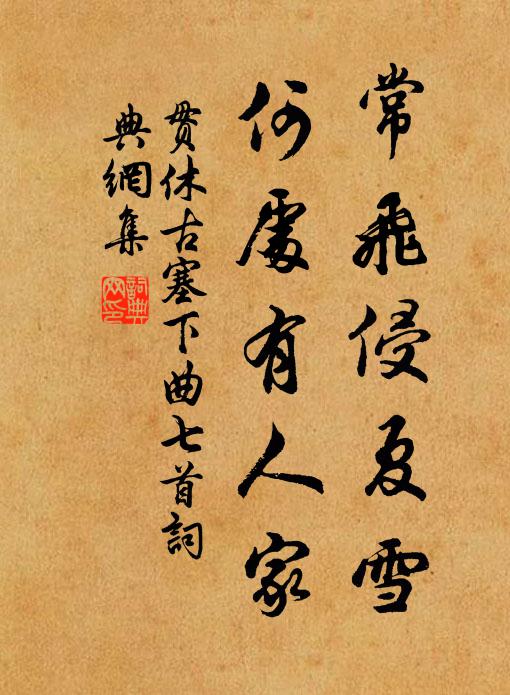 常飛侵夏雪
何處有人家
貫休古塞下曲七首詞
典網集
詞典網印